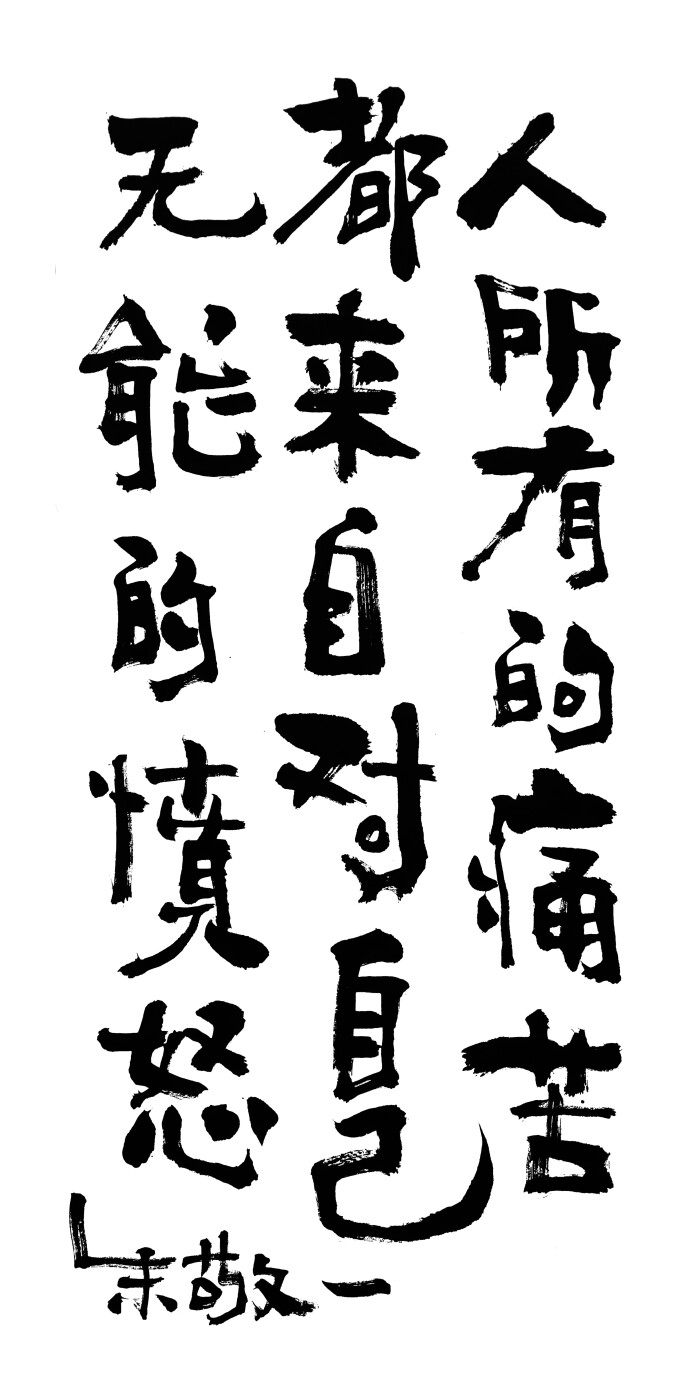 人所有的痛苦
都来自对自己
无能的愤怒
朱敬一